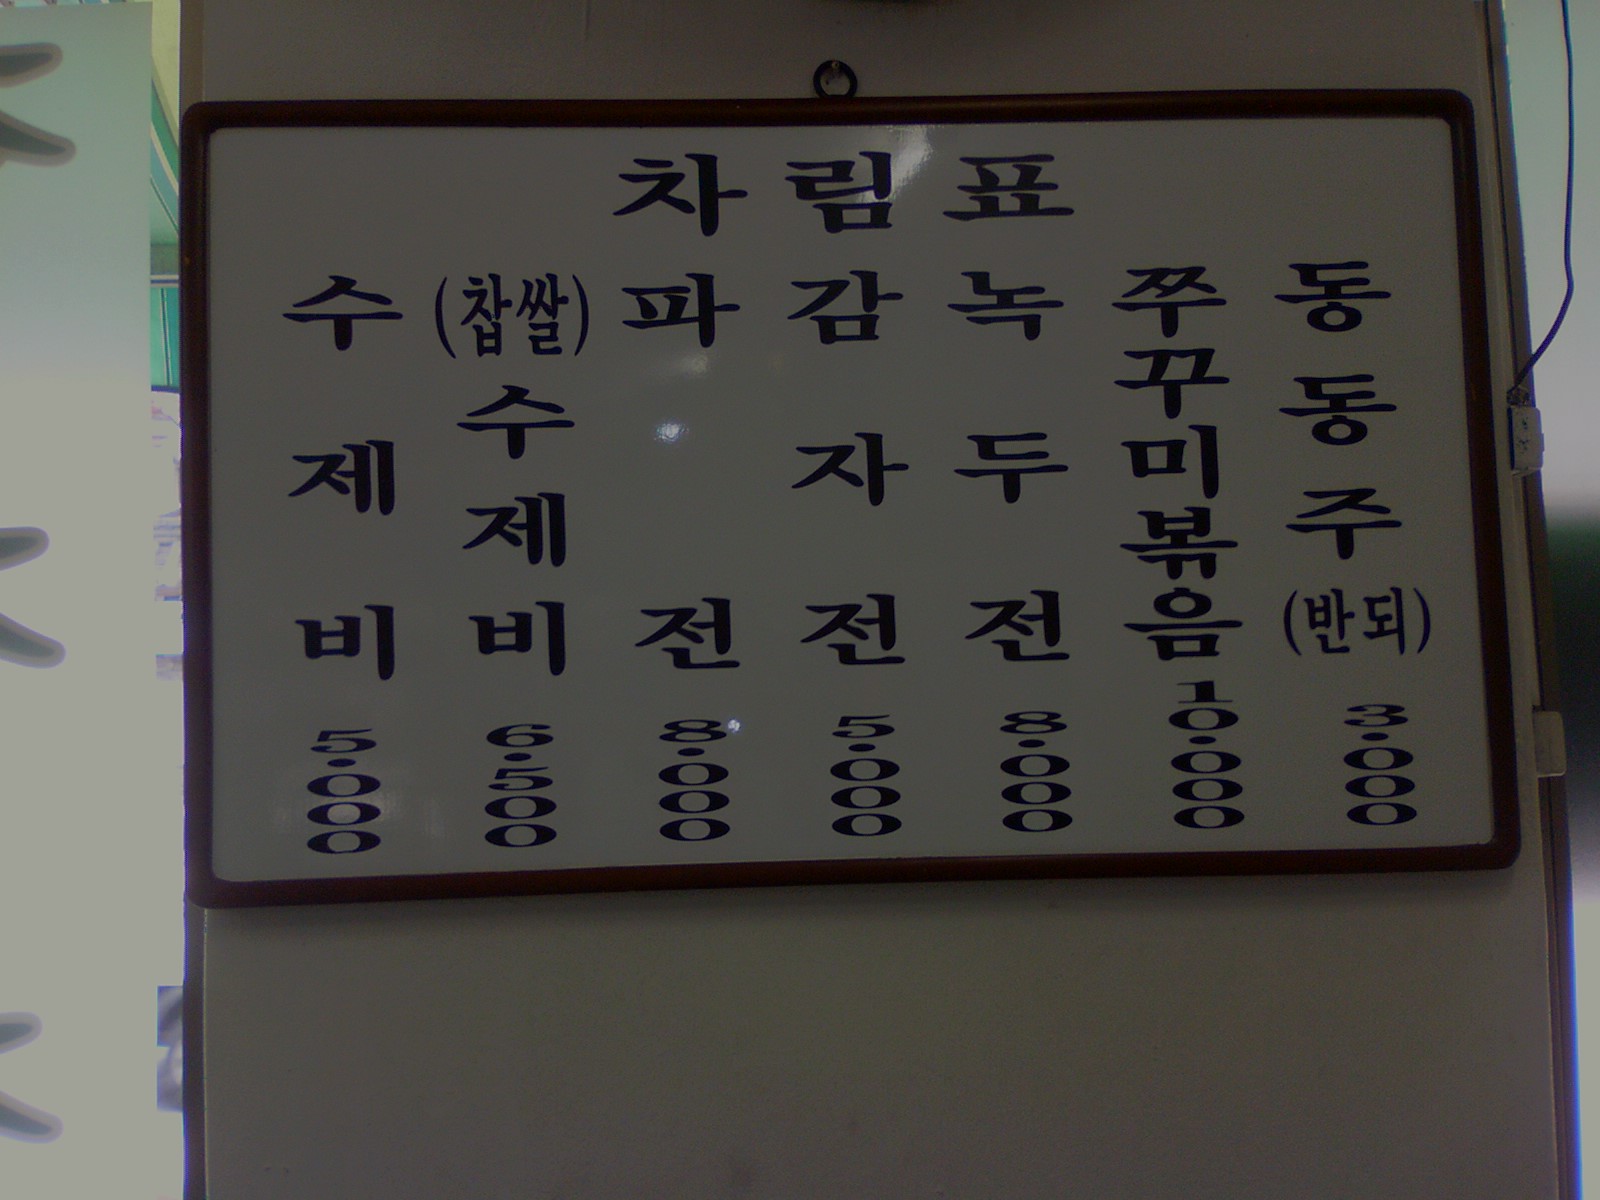 차림표
수제비 5.000
(찹쌀)수제비 6.500
파전 8.000
감자전 5.000
녹두전 8.000
쭈꾸미볶음 10.000
동동주(반되) 3.000